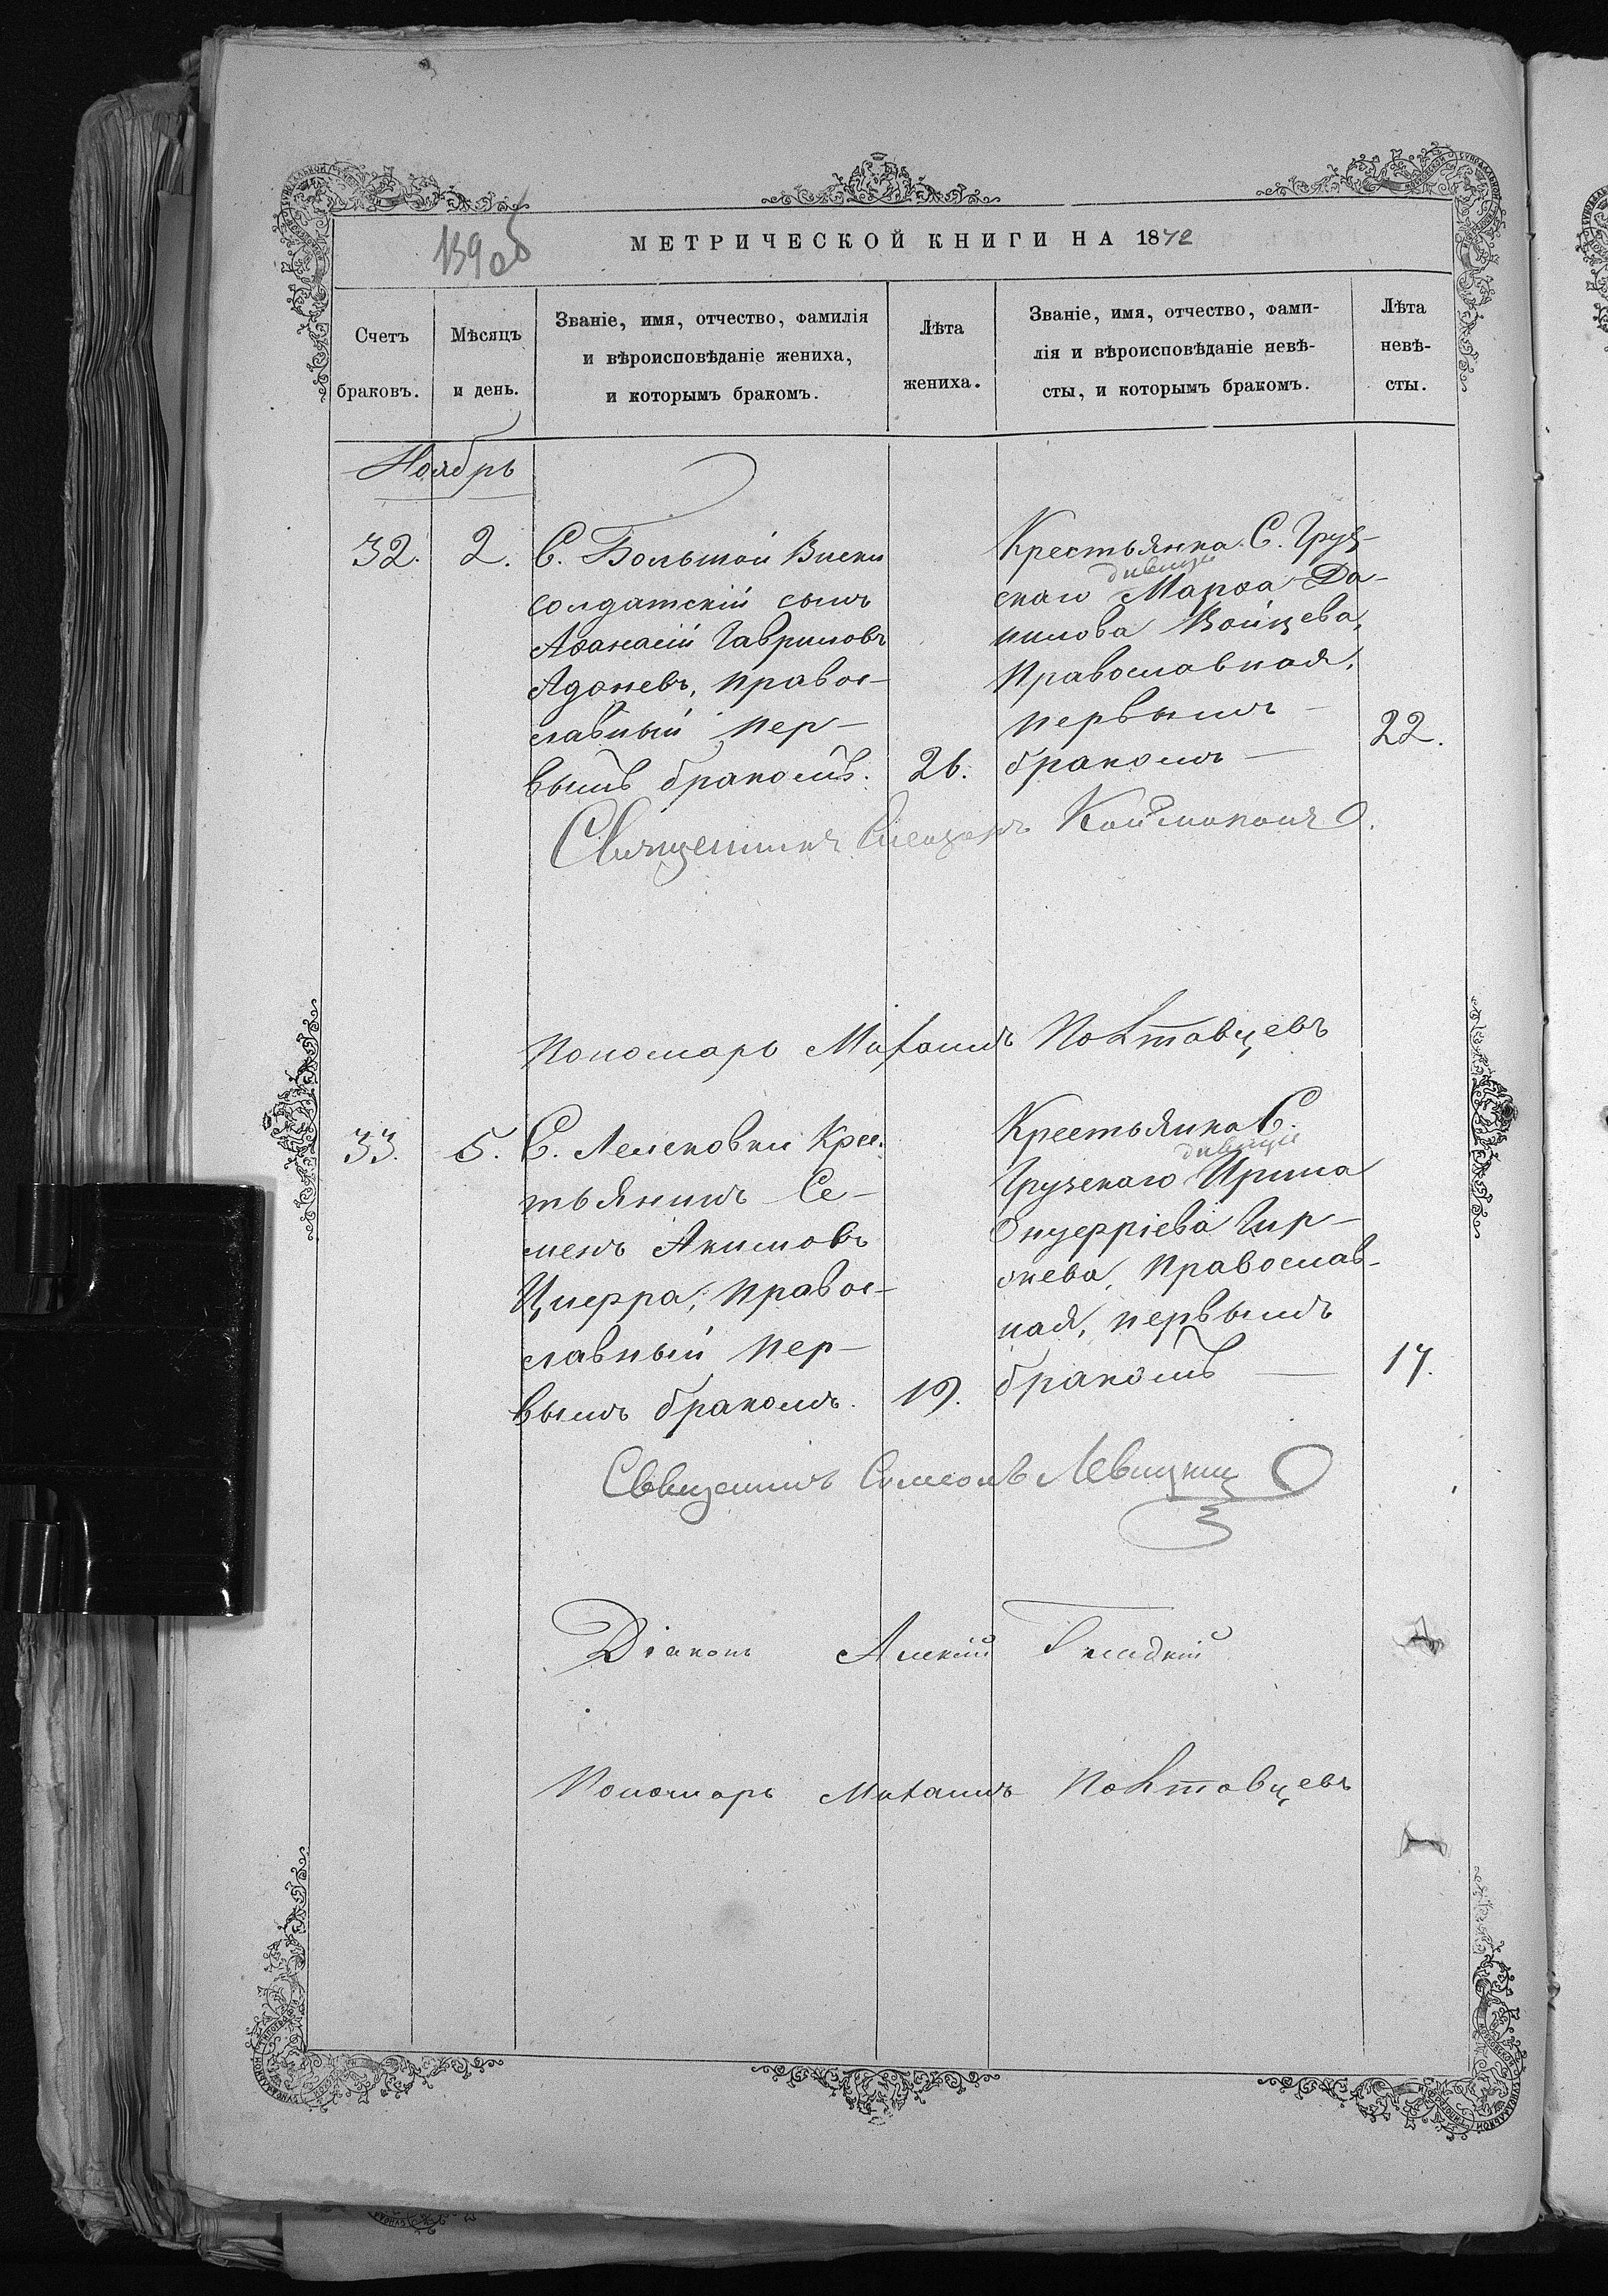 139 об
МЕТРИЧЕСКОЙ КНИГИ НА 1872
Счетъ
браковъ.
Мѣсяцъ
и день.
Званіе, имя, отчество, фамилія
и вѣроисповѣданіе жениха,
и которымъ бракомъ.
Лѣта
жениха.
Званіе, имя, отчество, фами-
лія и вѣроисповѣданіе невѣ-
сты, и которымъ бракомъ.
Лѣта
невѣ-
сты.
Ноябрь
32. 2.
С. Большой Виски
солдатскій сынъ
Аѳанасій Гавриловъ
Адоневъ, правос-
лавный пер-
вымъ бракомъ.
26.
Крестьянка С. Груз-
дѣвица
скаго Марѳа Да-
нилова Войцева,
Православная,
первымъ
бракомъ
22.
Священникъ Каймаканъ.
Пономарь Михаилъ Полтавцевъ
33. 5.
С. Лелековки Крес-
тьянинъ Се-
менъ Акимовъ
Циферра, правос-
лавный пер-
вымъ бракомъ.
19.
Крестьянка С.
дѣвица
Грузскаго Ирина
Онуфріева Гир-
жева, Православ-
ная, первымъ
бракомъ
17.
Священникъ Симеонъ Левицкий
Діаконъ
Пономарь Михаилъ Полтавцевъ